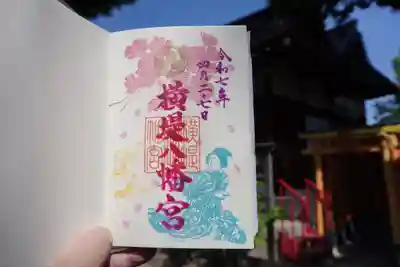 令和七年
四月二七日
横堤八幡宮